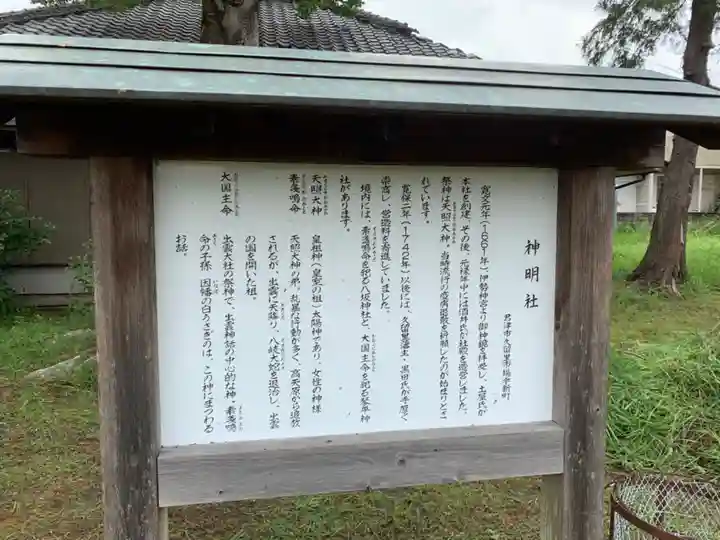 神明社
君津市久留里市場字新町
寛文元年（1661年）、伊勢神宮より御神鏡を拝受し、土屋氏が
本社を創建、その後、元禄年中には酒井氏が社殿を造営しました。
祭神は天照大神。当時流行の疫病退散を祈願したのが始まりとさ
れています。
寛保二年（1742年）以後には、久留里藩主・黒田氏が手厚く
崇高し、営造料を寄進していました。
境内には、素蓋鳴命を祀る八坂神社と、大国主命を祀る
社があります。
天照大神
皇祖神（皇室の祖）太陽神であり、女性の神様
素蓋鳴命
天照大神の弟。乱暴な行動が多く、高天原から追放
されるが、出雲に天降り、八岐大蛇を退治し、出雲
の国を開いた祖。
大国主命
出雲大社の祭神で、出雲神話の中心的な神。素蓋鳴
命の子孫 因幡の白うさぎのは、この神にまつわる
お話。